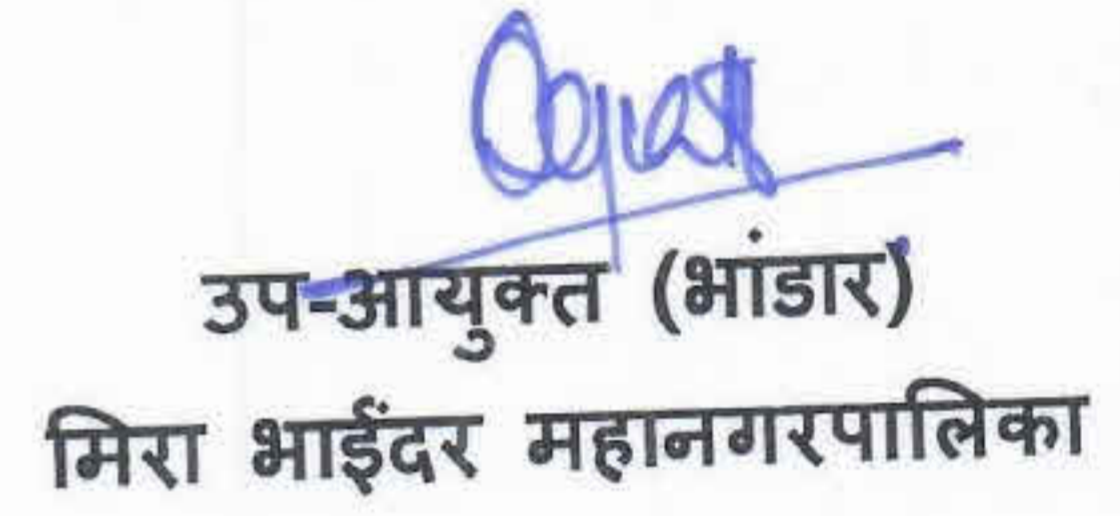 उप-आयुक्त (भांडार)
मिरा भाईंदर महानगरपालिका